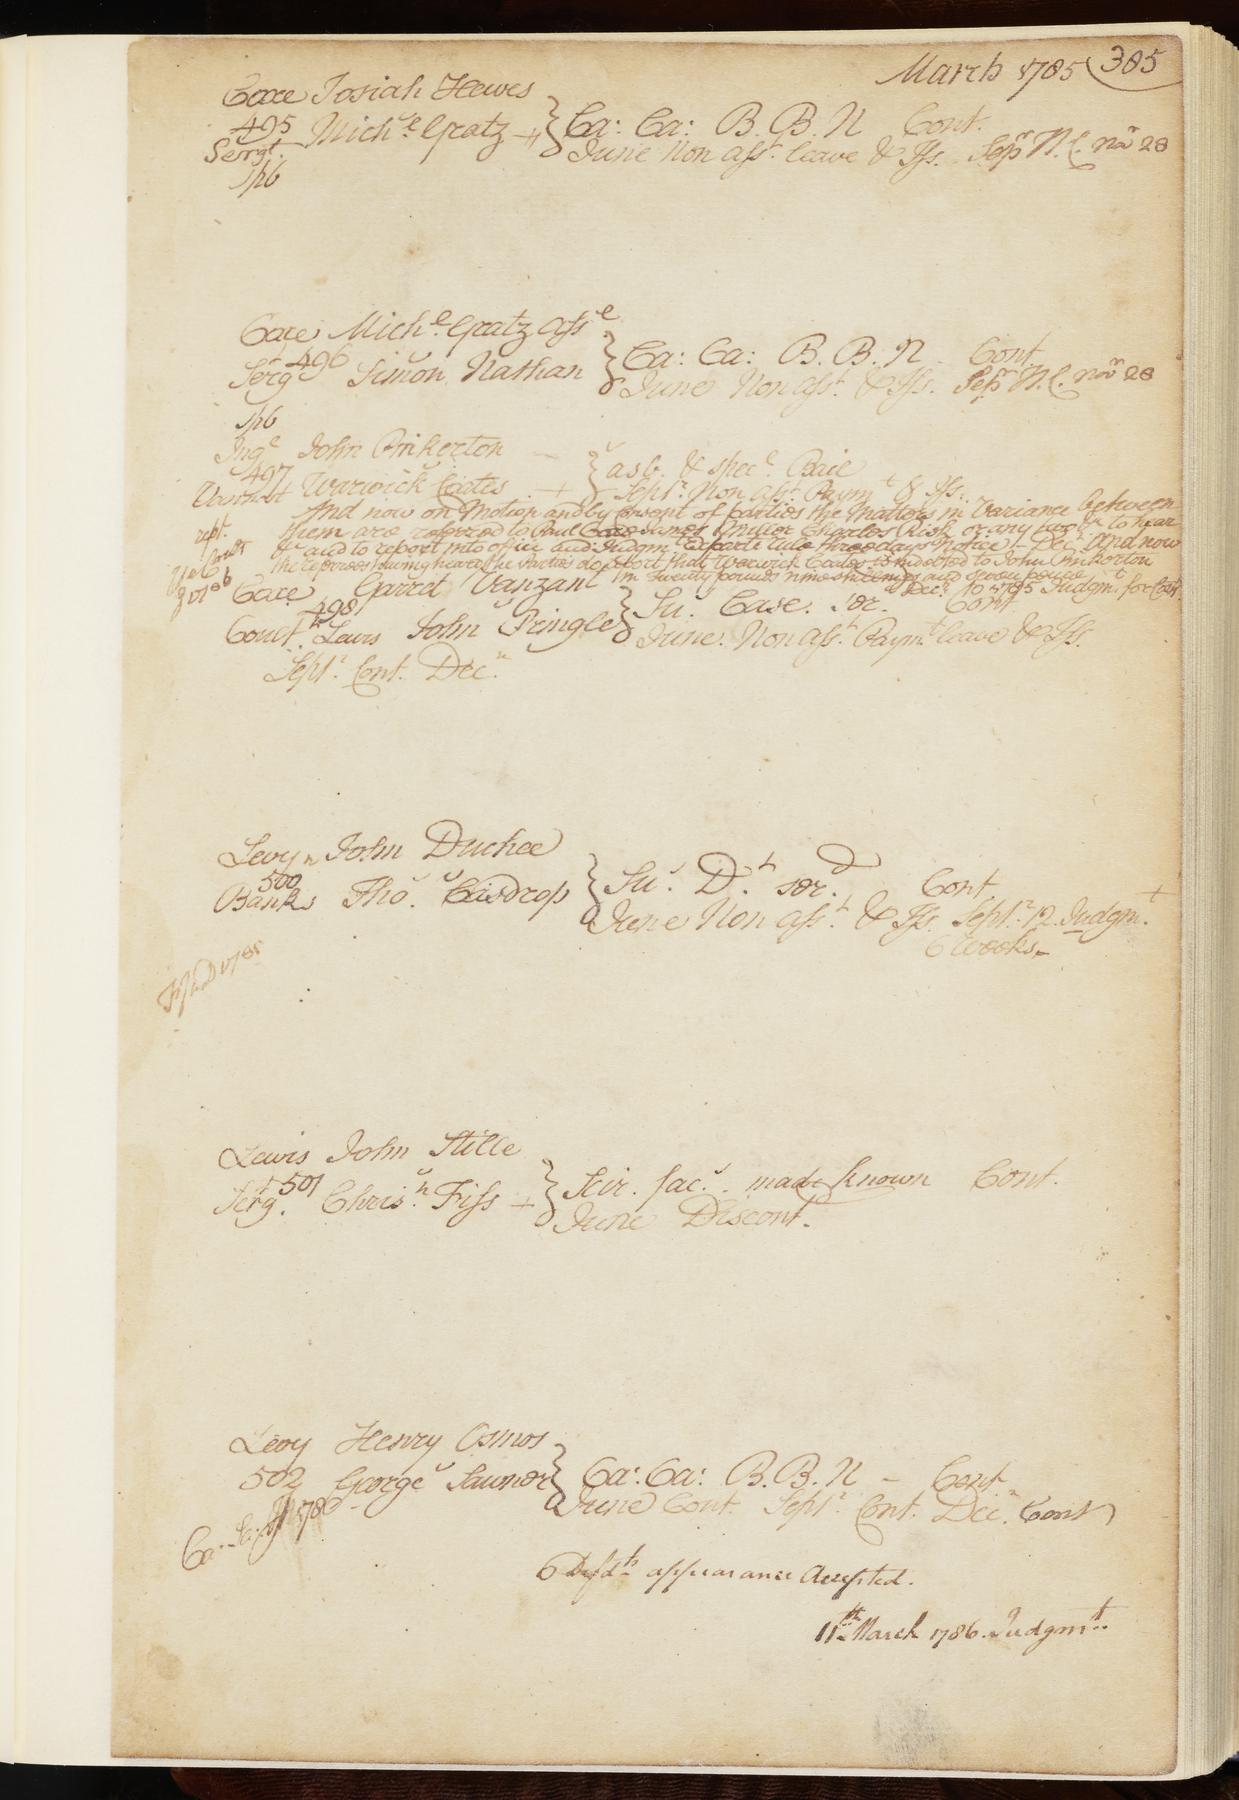 March 1785 385
Coxe Josiah Hewes
495 Mich.l Gratz } Ca: Ca: B. B. N Cont.
Sergt. June Non ass.t leave & Iss. Sep.r N. L. Nov.r 28
Coxe Mich.l Gratz Ass.e
496 Simon Nathan } Ca: Ca: B. B. N Cont.
Serg.t June Non ass.t & Iss. Sep.r N. L. Nov.r 28
Ing.l John Pinkerton
497 Warwick Coates } as b. & spec.l Bail
Sept.r Non ass.t Paym.t & Iss.
And now on Motion and by Consent of parties the Matters in Variance between
them are referred to Paul Coxe James Charles Risk or any two &c to hear
&c and to report into office and Judgm.t Exparte rule three days Notice Dec.r And now
the referees having heard the Parties do report that Warwick Coates is indebted to John Pinkerton
in Twenty pounds nine shillings and seven pence
Dec.r 10 1785 Judgm.t for
Coxe Garret Vanzant
498 John Pringle } Su.s Case. ser. Cont
Court Lewis June. Non ass.t Paym.t leave & Iss.
Sept.r Cont. Dec.r
Levy John Duchee
500
Banks Tho.s } Su.s D.t ser.d Cont
June Non ass.t & Iss. Sept.r 12 Judgm.t
6 Weeks.
Lewis John Stille
501
Serg.t Chris.n Fiss } Scir. fac.s made known Cont.
June Discont.
Levy Henry Osmos
502 George } Ca: Ca: B. B. N – Cont
June Cont. Sept.r Cont. Dec.r Cont
Defd.ts appearance Accepted.
11th March 1786. Judgm.t